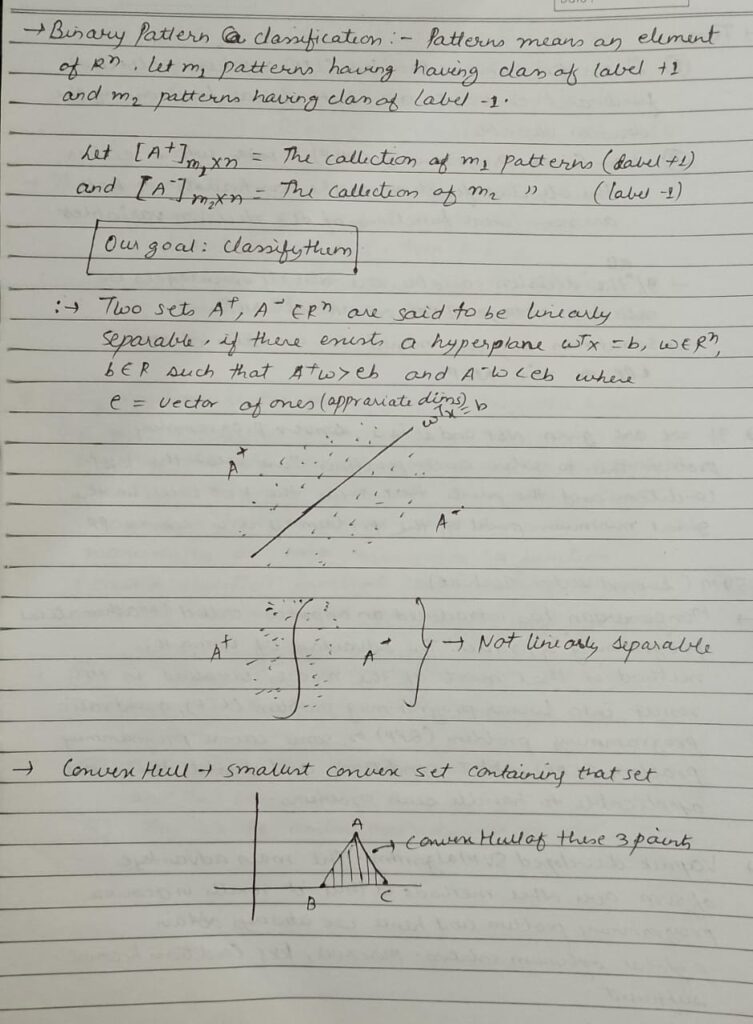 → Binary Pattern classification :- Patterns means an element
of Rⁿ. Let m₁ patterns having having class of label +1
and m₂ patterns having class of label -1.
Let [A⁺]m₁×n = The collection of m₁ patterns (label +1)
and [A⁻]m₂×n = The collection of m₂ " (label -1)
Our goal : classify them
:→ Two sets A⁺, A⁻ ∈ Rⁿ are said to be linearly
separable, if there exists a hyperplane wᵀx = b, w∈Rⁿ,
b∈R such that A⁺w>eb and A⁻w<eb where
e = vector of ones (appraiate dims)
wᵀx = b
A⁺
A⁻
A⁺ A⁻ → Not linearly separable
→ Convex Hull → smallest convex set containing that set
A
→ Convex Hull of these 3 points
B C